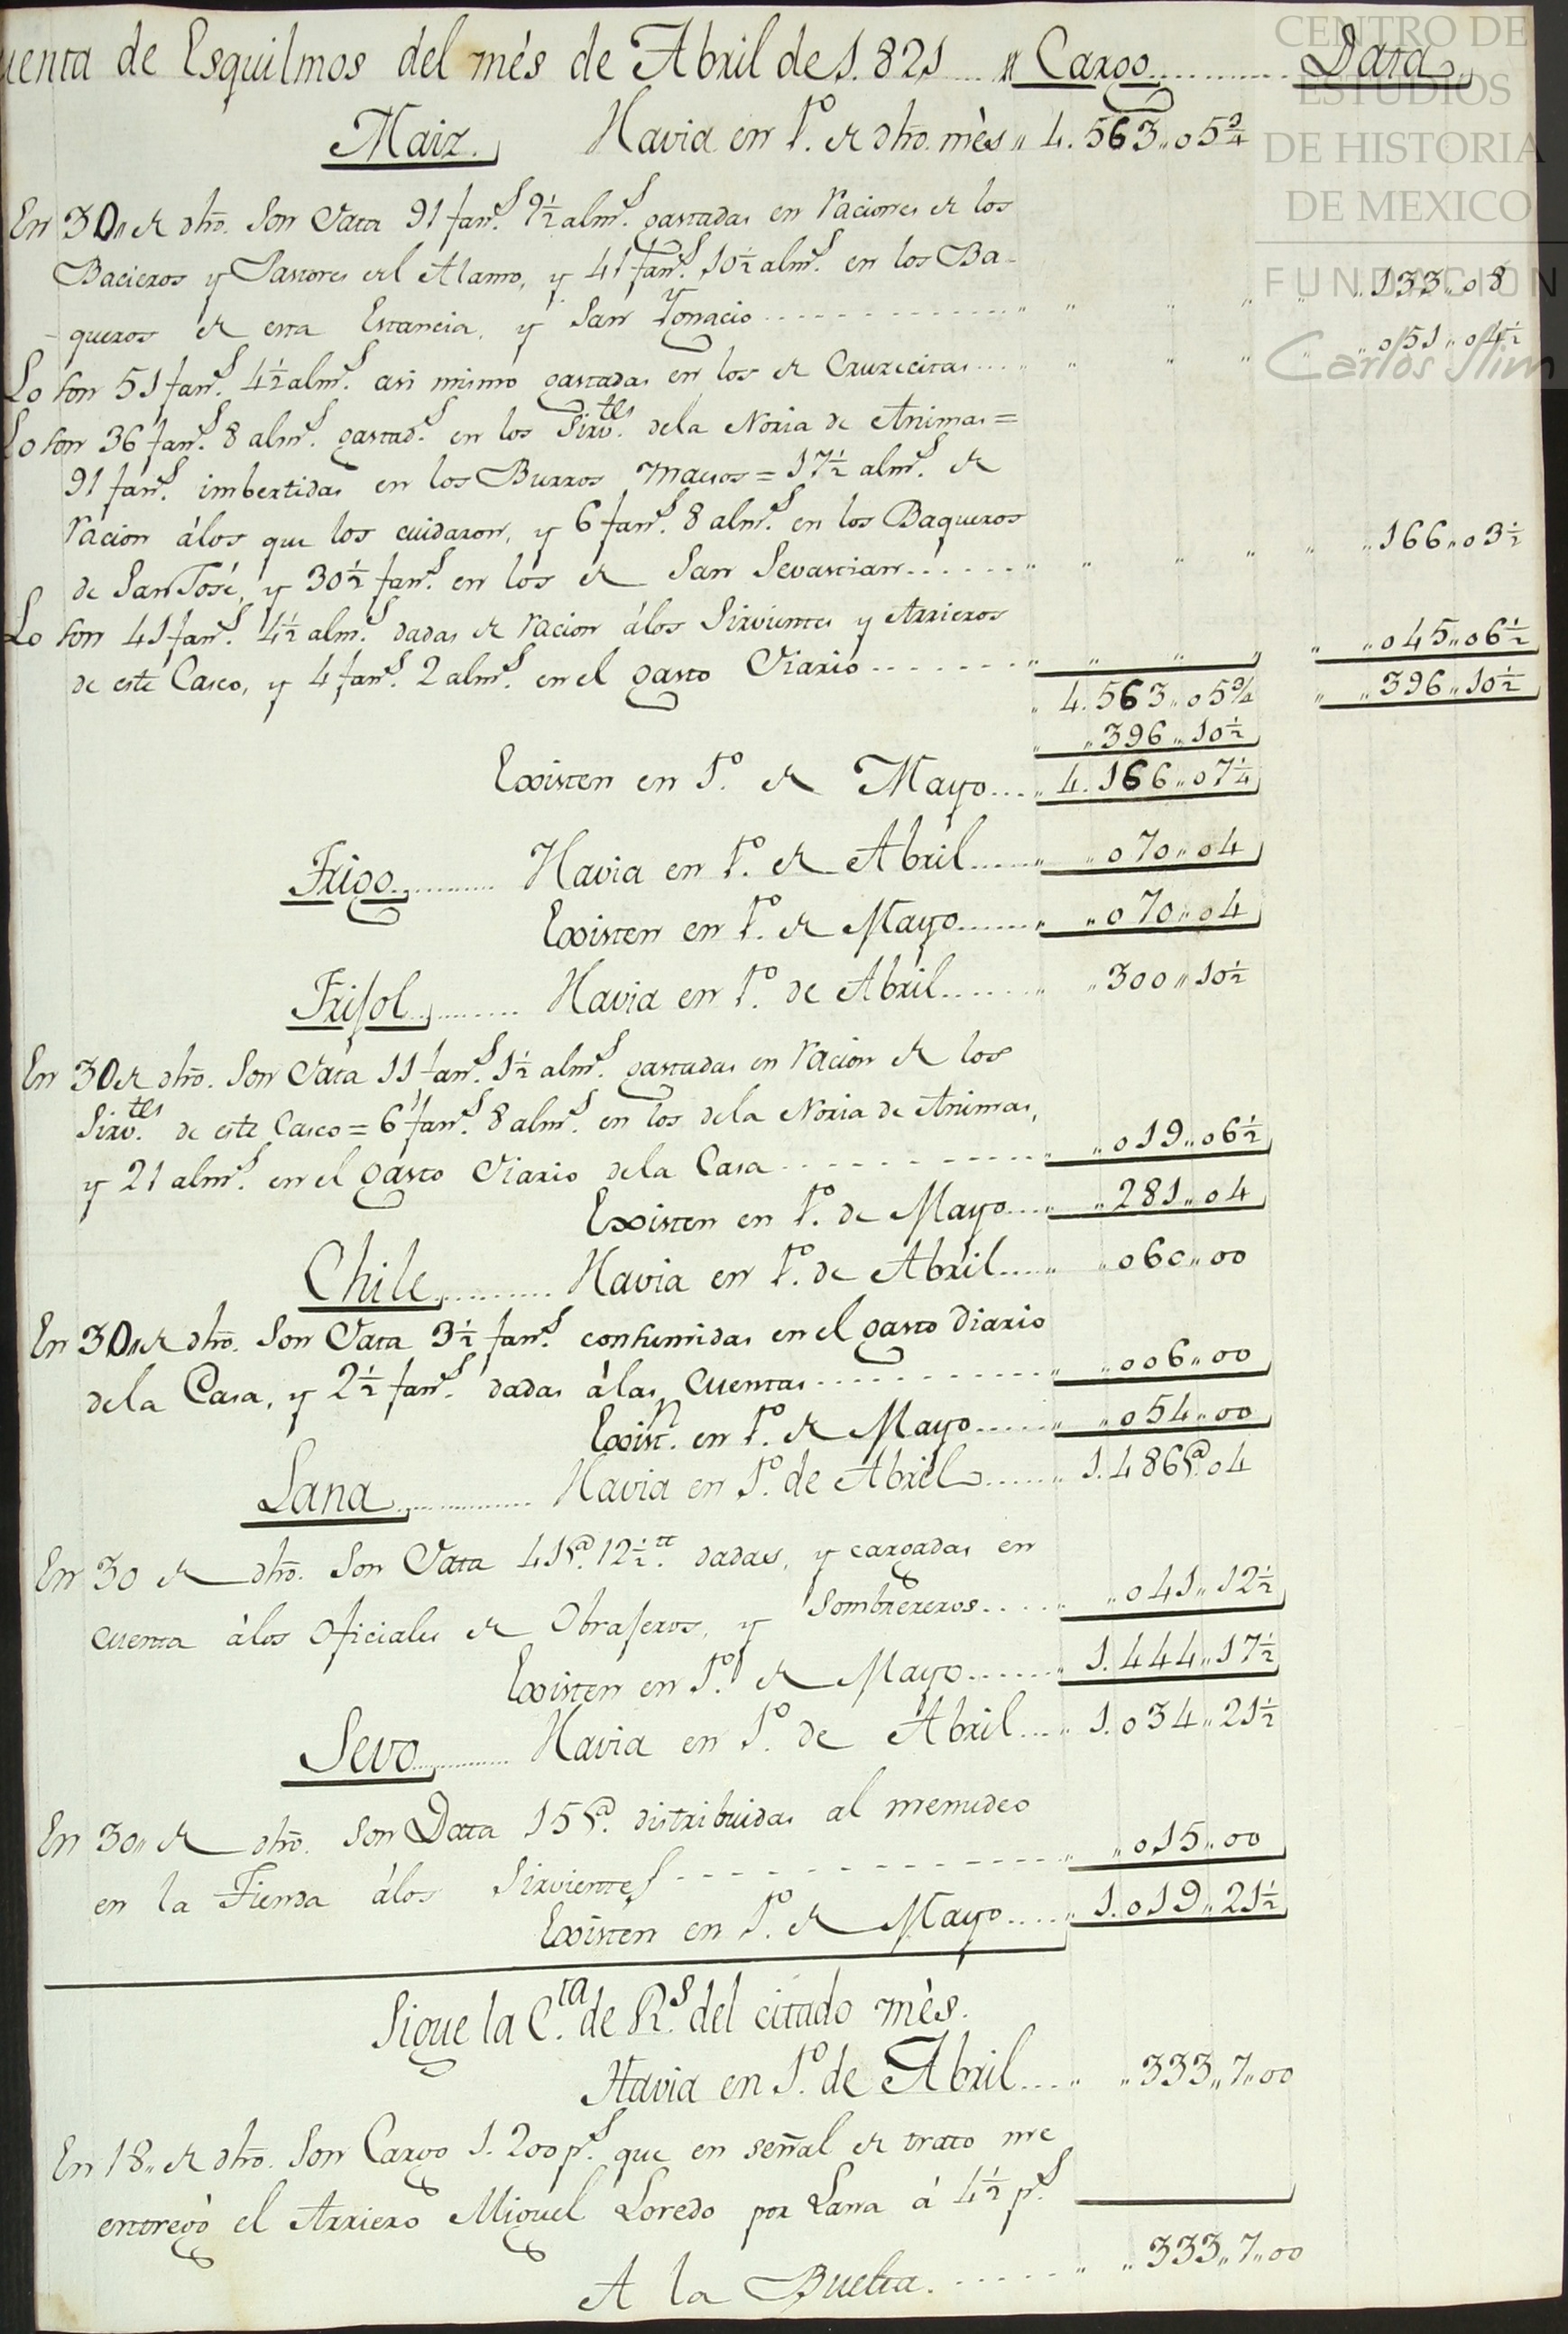 uenta de Esquilmos del més de Abril de 1.821 .... „ Cargo ............ Data
Maiz. Havia en 1º. de dho. mès „ 4.563 „ 05¾
En 30 „ de dho. Son Data 91 fan.s 9½ alm.s gastadas en raciones de los
Bacieros y Pastores del Alamo, y 41 fan.s 10½ alm.s en los Ba-
queros de esta Estancia, y San Ygnacio ............ „ „ „ „ „ „ 133 „ 08
Lo son 51 fan.s 4½ alm.s asi mismo gastadas en los de Cruzecitas ... „ „ „ „ „ „ 051 „ 04½
Lo son 36 fan.s 8 alm.s gastad.s en los Sirv.tes dela Noria de Animas =
91 fan.s imbertidas en los Burros Mauos = 17½ alm.s de
racion álos que los cuidaron, y 6 fan.s 8 alm.s en los Baqueros
de San José, y 30½ fan.s en los de San Sevastian ...... „ „ „ „ „ „ 166 „ 03½
Lo son 41 fan.s 4½ alm.s dadas de racion álos Sirvientes y Arrieros
de este Casco, y 4 fan.s 2 alm.s en el gasto Diario ....... „ „ „ „ „ „ 045 „ 06½
„ 4.563 „ 05¾ „ „ 396 „ 10½
„ „ 396 „ 10½
Existen en 1º. de Mayo .... „ 4.166 „ 07¼
Trigo .......... Havia en 1º. de Abril ...... „ „ 070 „ 04
Existen en 1º. de Mayo ....... „ „ 070 „ 04
Frisol .......... Havia en 1º. de Abril ....... „ „ 300 „ 10½
En 30 de dho. Son Data 11 fan.s 1½ alm.s gastadas en racion de los
Sirv.tes de este Casco = 6 fan.s 8 alm.s en los dela Noria de Animas,
y 21 alm.s en el gasto Diario dela Casa ............ „ „ 019 „ 06½
Existen en 1º. de Mayo .... „ „ 281 „ 04
Chile .......... Havia en 1º. de Abril ..... „ „ 060 „ 00
En 30 „ de dho. Son Data 3½ fan.s consumidas en el gasto Diario
dela Casa, y 2½ fan.s dadas álas Cuentas ........... „ „ 006 „ 00
Exist.n en 1º. de Mayo ..... „ „ 054 „ 00
Lana ............. Havia en 1º. de Abril ...... „ 1.486 @. 04
En 30 de dho. Son Data 41 @. 12½ tt. dadas, y cargadas en
cuenta álos Oficiales de Obrajeros, y Sombrereros ..... „ „ 041 „ 12½
Existen en 1º. de Mayo ...... „ 1.444 „ 17½
Sevo .......... Havia en 1º. de Abril .... „ 1.034 „ 21½
En 30 „ de dho. Son Data 15 @. distribuidas al menudeo
en la Tienda álos Sirvientes ............ „ „ 015 „ 00
Existen en 1º. de Mayo ..... „ 1.019 „ 21½
Sigue la C.ta de R.s del citado mès.
Havia en 1º. de Abril .... „ „ 333 „ 7 „ 00
En 18 „ de dho. Son Cargo 1.200 p.s que en señal de trato me
entregò el Arriero Miguel Loredo por Lana á 4½ p.s
A la Buelta. ...... „ „ 333 „ 7 „ 00
CENTRO DE
ESTUDIOS
DE HISTORIA
DE MEXICO
FUNDACIÓN
Carlos Slim